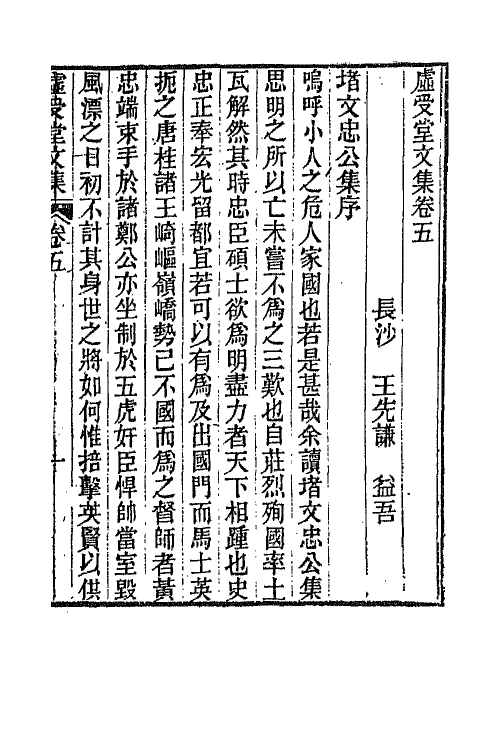 虛受堂文集卷五
長沙　王先謙　益吾
堵文忠公集序
嗚呼小人之危人家國也若是甚哉余讀堵文忠公集
思明之所以亡未嘗不爲之三歎也自莊烈殉國率土
瓦解然其時忠臣碩士欲爲明盡力者天下相踵也史
忠正奉宏光留都宜若可以有爲及出國門而馬士英
扼之唐桂諸王崎嶇嶺嶠勢已不國而爲之督師者黃
忠端束手於諸鄭公亦坐制於五虎奸臣悍帥當室毀
風漂之日初不計其身世之將如何惟掊擊英賢以倶
虛受堂文集　卷五　一